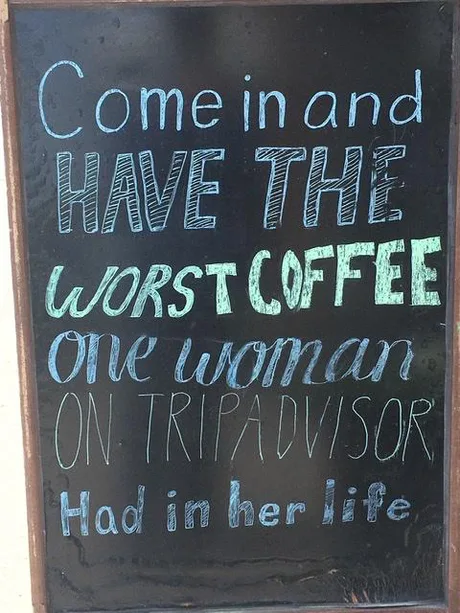 Come in and
HAVE THE
WORST COFFEE
one woman
ON TRIPADVISOR
Had in her life